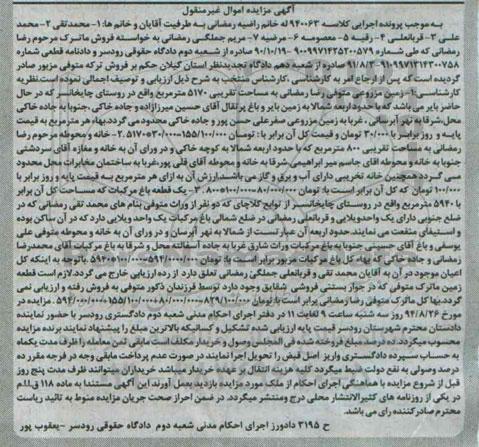 آگهی مزایده اموال غیرمنقول
به موجب پرونده اجرایی کلاسه ۹۴۰۰۶۳ له خانم راضیه رمضانی به طرفیت آقایان و خانم ها: ۱- محمدتقی ۲- محمد
علی ۳- قربانعلی ۴- رقیه ۵- معصومه ۶- مرضیه ۷- مریم جملگی رمضانی به خواسته فروش ماترک مرحوم رضا
رمضانی که طی شماره ۹۰۰۹۹۷۱۴۳۵۲۰۰۵۷۹- ۹۰/۱۰/۱۹ صادره از شعبه دوم دادگاه حقوقی رودسر و دادنامه قطعی شماره
۹۱۰۹۹۷۱۳۱۴۳۰۰۷۵۸- ۹۱/۸/۳ صادره از شعبه دهم دادگاه تجدیدنظر استان گیلان حکم بر فروش ترکه متوفی مزبور صادر
گردیده است که پس از ارجاع امر به کارشناسی، کارشناس منتخب به شرح ذیل ارزیابی و توصیف اجمالی نموده است. نظریه
کارشناسی: ۱- زمین مزروعی متوفی رضا رمضانی به مساحت تقریبی ۵۱۷۰ مترمربع واقع در روستای چایخانسر که در حال
حاضر بایر می باشد که با حدود اربعه شمالا به زمین بایر و باغ پرتقال آقای حسین میرزازاده و جاده خاکی، جنوبا به جاده خاکی
محل، شرقا به نهر آبران، غربا به زمین مزروعی صفرعلی حسن پور و جاده خاکی محدود می گردد. بهاء هر مترمربع به قیمت
پایه و روز برابر با ۳۰/۰۰۰ تومان و قیمت کل آن برابر با: تومان ۱۵۵/۱۰۰/۰۰۰=۳۰۰۰۰×۵۱۷۰. ۲- خانه و محوطه مرحوم رضا
رمضانی به مساحت تقریبی ۸۰۰ مترمربع که با حدود اربعه شمالا به کوچه خاکی و در ورای آن به خانه و مغازه آقای سردشتی
جنوبا به خانه و محوطه آقای جاسم میر ابراهیمی، شرقا به خانه و محوطه آقای قلی پور، غربا به ساختمان مخابرات محل محدود
می گردد همچنین خانه تخریبی دارای آب و برق و گاز می باشد. ارزش آن به ازای هر مترمربع به قیمت پایه و روز برابر با
۱۰۰/۰۰۰ تومان که کل آن برابر است با: تومان ۸۰/۰۰۰/۰۰۰=۱۰۰/۰۰۰×۸۰۰. ۳- یک قطعه باغ مرکبات که مساحت کل آن برابر
با ۵۹۴۰ مترمربع واقع در روستای چایخانسر از توابع کلاچای که دو نفر از وراث متوفی بنام های محمد تقی رمضانی که در
ضلع جنوبی دارای یک واحد ویلایی و قربانعلی رمضانی در ضلع شمالی باغ مرکبات یک واحد ویلایی دارد که در آن ساکن بوده
و استیفای منفعت می نمایند. حدود اربعه آن عبارت است از شمالا به نهر آببران و در ورای آن به خانه و محوطه متوفی علی
یوسفی و باغ آقای حسینی، جنوبا به باغ مرکبات وراث شارق، غربا به جاده آسفالته محل و شرقا به باغ مرکبات آقای محمدرضا
رمضانی و جاده خاکی که بهاء کل باغ مرکبات مزبور برابر است با: تومان ۵۹۴/۰۰۰/۰۰۰=۱۰۰/۰۰۰×۵۹۴۰. باتوجه به اینکه کل
اعیان موجود در آن به آقایان محمد تقی و قربانعلی جملگی رمضانی تعلق دارد از رده ارزیابی خارج می گردد. لازم است قطعه
زمین ماترک متوفی که در جواز بستنی فروشی شقایق وجود دارد توسط فرزندان ذکور متوفی به فروش رفته و ارزیابی نمی
گردد. بها کل ماترک متوفی رضا رمضانی برابر است با: تومان ۸۲۹/۱۰۰/۰۰۰=۸۰/۰۰۰/۰۰۰+۱۵۵/۱۰۰/۰۰۰+۵۹۴/۰۰۰/۰۰۰. مزایده در
مورخ ۹۴/۸/۲۶ روز سه شنبه ساعت ۹ لغایت ۱۱ در دفتر اجرای احکام مدنی شعبه دوم دادگستری رودسر با حضور نماینده
دادستان محترم شهرستان رودسر قیمت پایه ارزیابی شده تشکیل و کسانیکه بالاترین مبلغ را پیشنهاد نمایند برنده مزایده
محسوب میگردد. ده درصد مبلغ فروخته شده فی المجلس وصول و خریدار مکلف است مابقی ثمن معامله را ظرف مدت یکماه
به حساب سپرده دادگستری واریز اصل فیش را تحویل اجرا نمایند در صورت عدم پرداخت مابقی وجه در فرجه مقرر ده
درصد وصولی به نفع دولت ضبط میگردد. کلیه هزینه انتقال بر عهده خریدار میباشد خریداران میتوانند ظرف مدت پنج روز
قبل از شروع مزایده با هماهنگی اجرای احکام از ملک مورد مزایده بازدید بعمل آورند. این آگهی مستندا به ماده ۱۱۸ ق.ا.م
در یکی از روزنامه های کثیرالانتشار محلی درج و منتشر میگردد. در ضمن احراز صحت جریان مزایده منوط به تائید ریاست
محترم صادرکننده رای می باشد.
ح ۳۱۹۵ دادورز اجرای احکام مدنی شعبه دوم دادگاه حقوقی رودسر -یعقوب پور